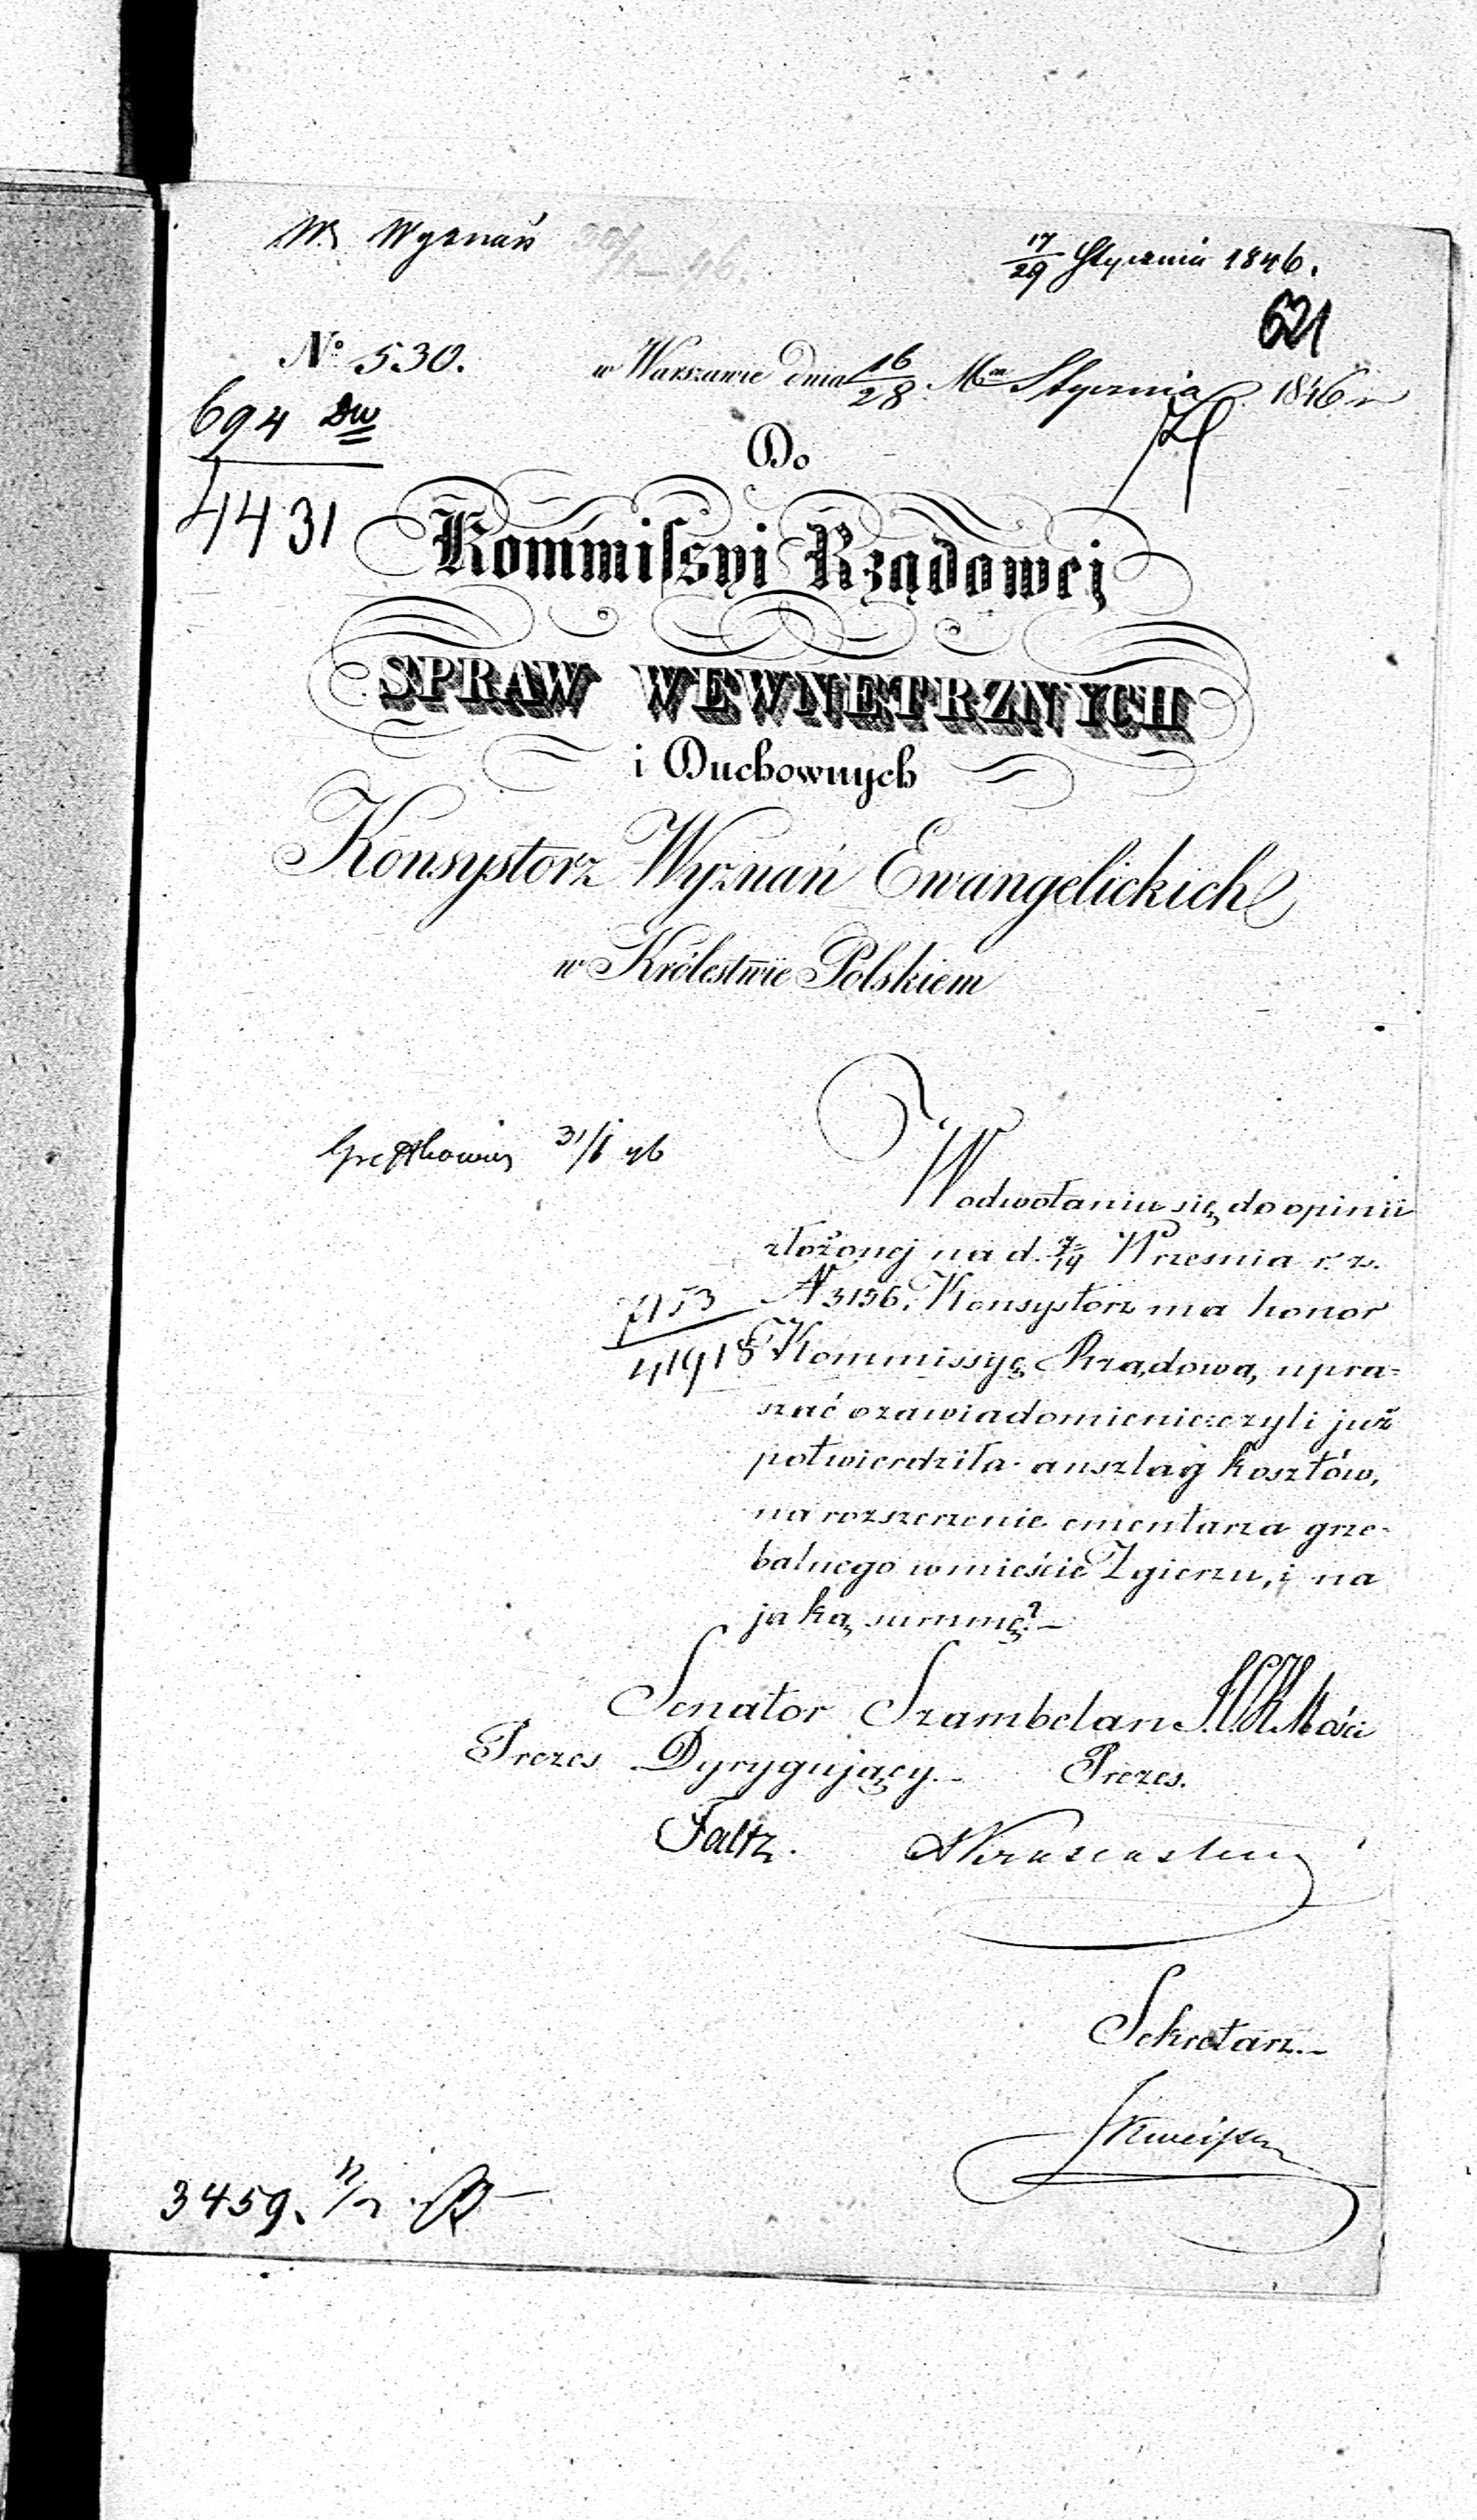 W. Wyznań
17/29 Stycznia 1846.
621
No 530. w Warszawie dnia 16/28 Mca Stycznia 1846 r
694 DW
4431
Do
Kommissyi Rządowej
SPRAW WEWNETRZNYCH
i Duchownych
Konsystorz Wyznań Ewangelickich
w Królestwie Polskiem
31/1 46
W odwołaniu się do opinii
złożonej na d. Września r. z.
N 3156. Konsystorz ma honor
Kommissyę Rządową upra-
szać o zawiadomienie: czyli już
potwierdziła anszlag kosztów,
na rozszerzenie cmentarza grze-
balnego w mieście Zgierzu, i na
jaką summę? —
7153
41918
Senator Szambelan J.C.K. Mości
Prezes Dyrygujący.— Prezes.
Faltz.
Sekretarz.—
3459.